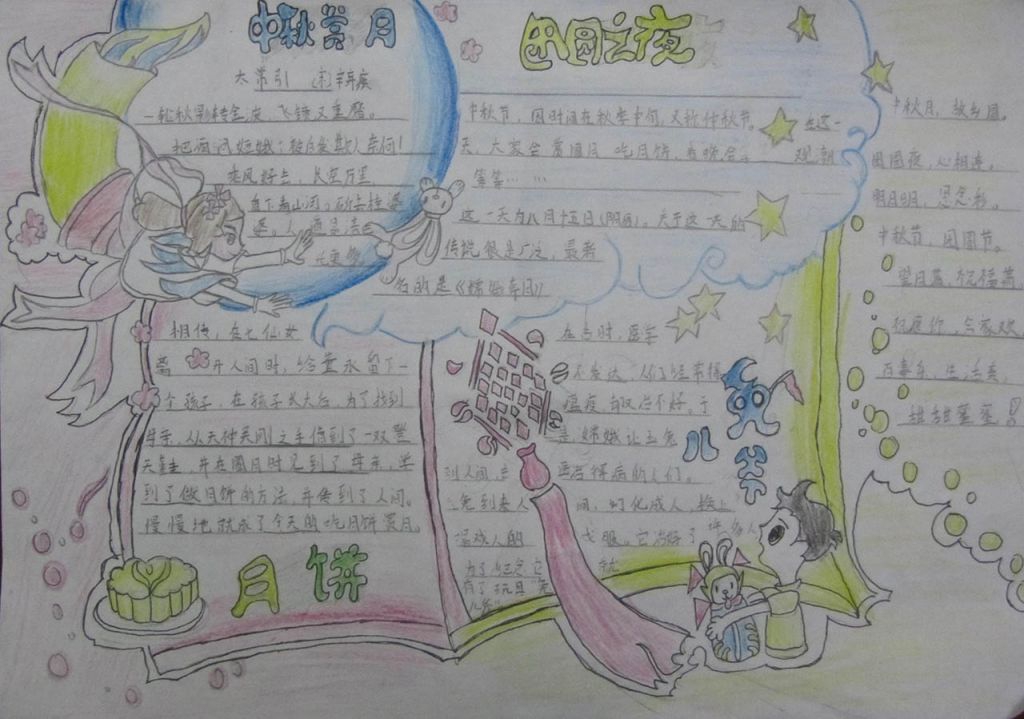 中秋赏月
太常引 (宋)辛弃疾
一轮秋影转金波,飞镜又重磨。
把酒问姮娥:被白发欺人奈何!
乘风好去,长空万里
直下看山河。斫去桂婆
婆。人道是清
光更多
团圆之夜
中秋节,因时间在秋季中旬,又称仲秋节。在这一
天,大家会赏圆月 吃月饼,看晚会。 观潮
等等……
这一天为八月十五日(阴历)。关于这一天的
传说很是广泛,最著
名的是《嫦娥奔月》
中秋月,故乡圆。
团圆夜,心相连。
明月明,思念
中秋节,团圆节。
望月 祝福
祝愿你,合家欢
百事乐,生活美,
甜甜蜜蜜!
相传,在七仙女
离开人间时,给董永留下一
个孩子,在孩子长大后,为了找到
母亲,从天神 之手 到了一双登
天鞋,并在圆月时见到了母亲,学
到了做月饼的方法,并传到了人间。
慢慢地就成了今天的吃月饼赏月。
月饼
兔儿爷
在古时,医学
不发达,人们经常得
瘟疫, 不好。于
是,嫦娥让玉兔
到人间,去医治得病的人们。
兔到来人间,幻化成人
成人的 衣服。它治好了许多人
为了纪念它 就
有了玩具 兔
儿爷